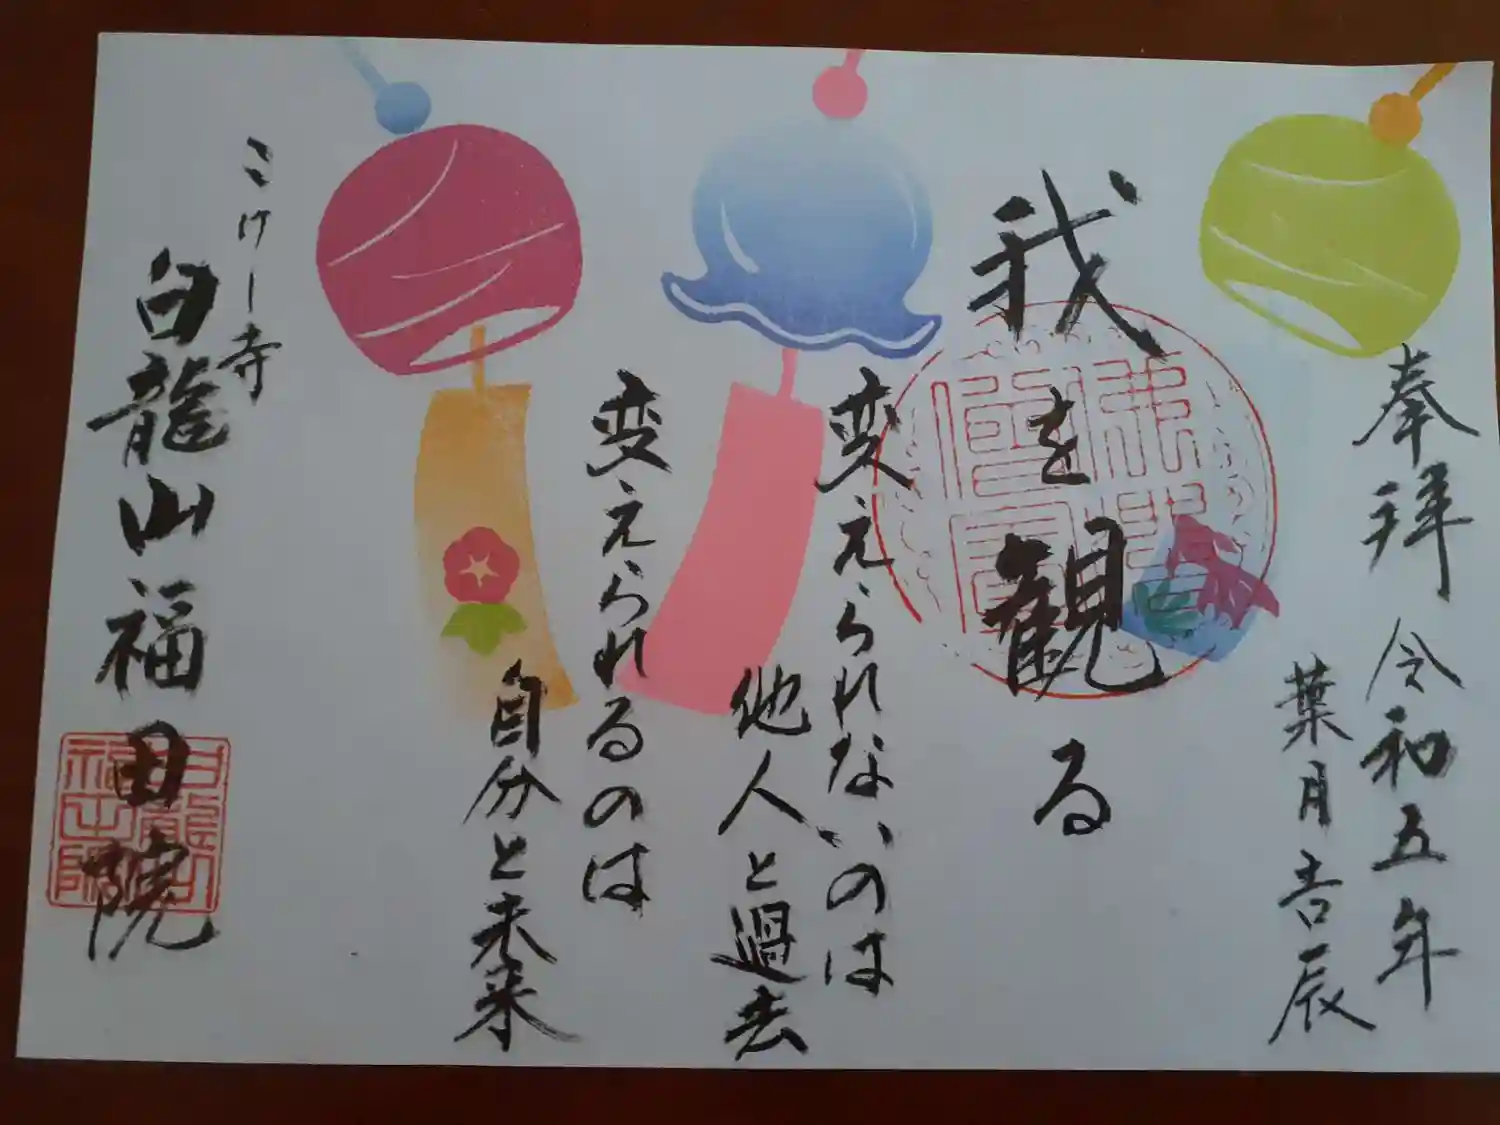 奉拝 令和五年
葉月吉辰
我を観る
変えられないのは
他人と過去
変えられるのは
自分と未来
こけし寺
白龍山福田院